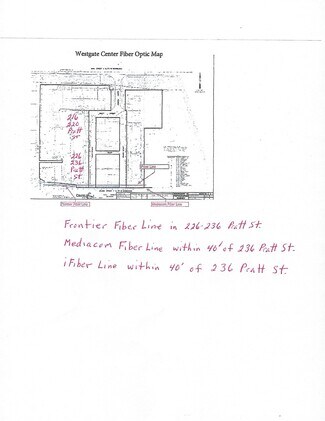 Westgate Center Fiber Optic Map
216
220
Pratt
St.
226
236
Pratt
St.
Frontier Fiber Line in 226-236 Pratt St.
Mediacom Fiber Line within 40' of 236 Pratt St.
iFiber Line within 40' of 236 Pratt St.